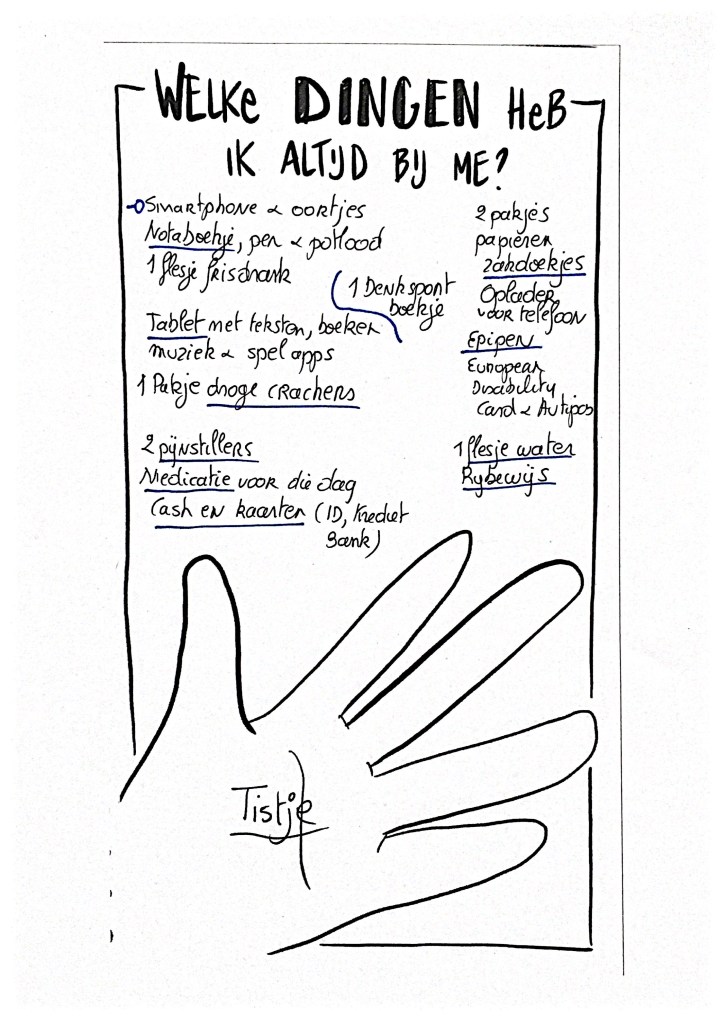 WELKe DINGEN HeB
IK ALTIJD BIJ ME?
Smartphone & oortjes
Notaboekje, pen & potlood
1 flesje frisdrank
1 Denksport
boekje
Tablet met teksten, boeken
muziek & spel apps
1 Pakje droge crackers
2 pijnstillers
Medicatie voor die dag
Cash en kaarten (ID, Krediet
Bank)
2 pakjes
papieren
zakdoekjes
Oplader
voor telefoon
Epipen
European
Disability
Card & Autipas
1 flesje water
Rijbewijs
Tistje